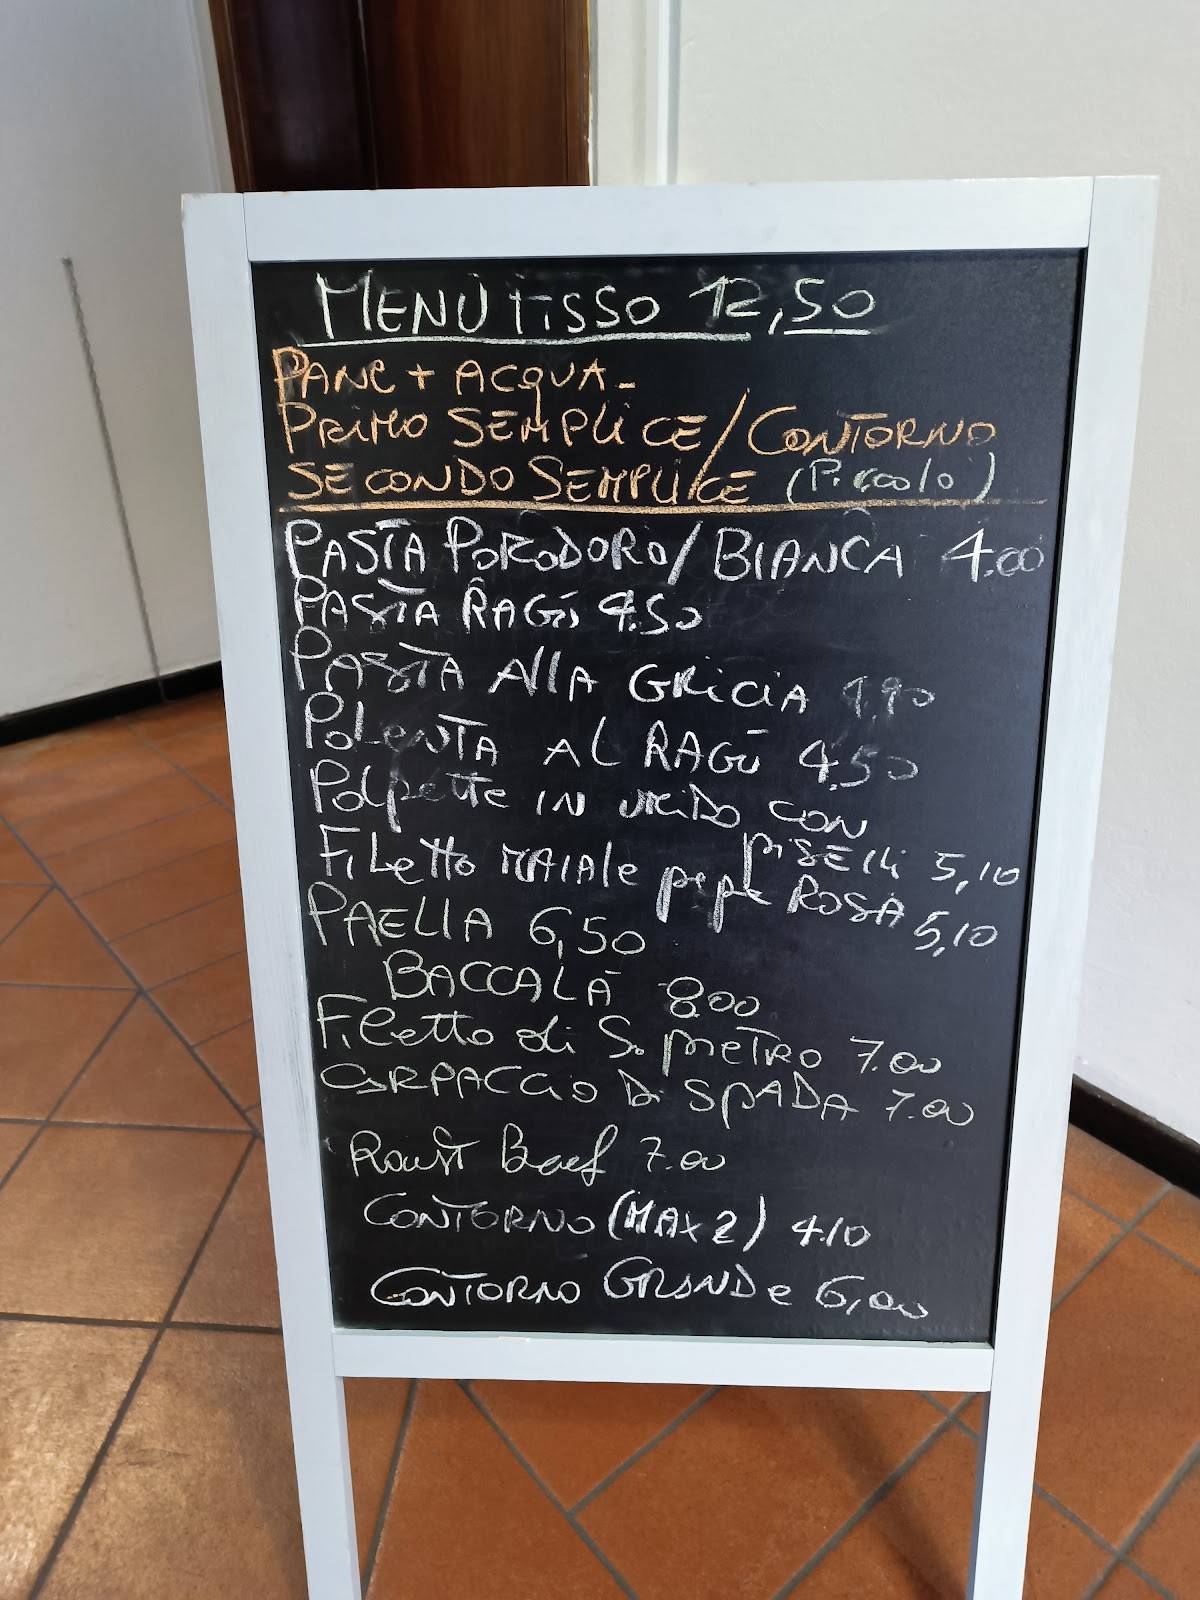 MENÙ FISSO 12,50
PANE + ACQUA -
PRIMO SEMPLICE / CONTORNO
SECONDO SEMPLICE (Piccolo)
PASTA POMODORO / BIANCA 4.00
PASTA RAGÙ 4.50
PASTA ALLA GRICIA 4.90
POLENTA AL RAGÙ 4.50
Polpette IN UMIDO CON
PISELLI 5,10
FILETTO MAIALE pepe ROSA 5,10
PAELLA 6,50
BACCALÀ 8.00
FILETTO di S. PIETRO 7.00
CARPACCIO Di SPADA 7.00
Roast Beef 7.00
CONTORNO (MAX 2) 4.10
CONTORNO GRANDE 6,00